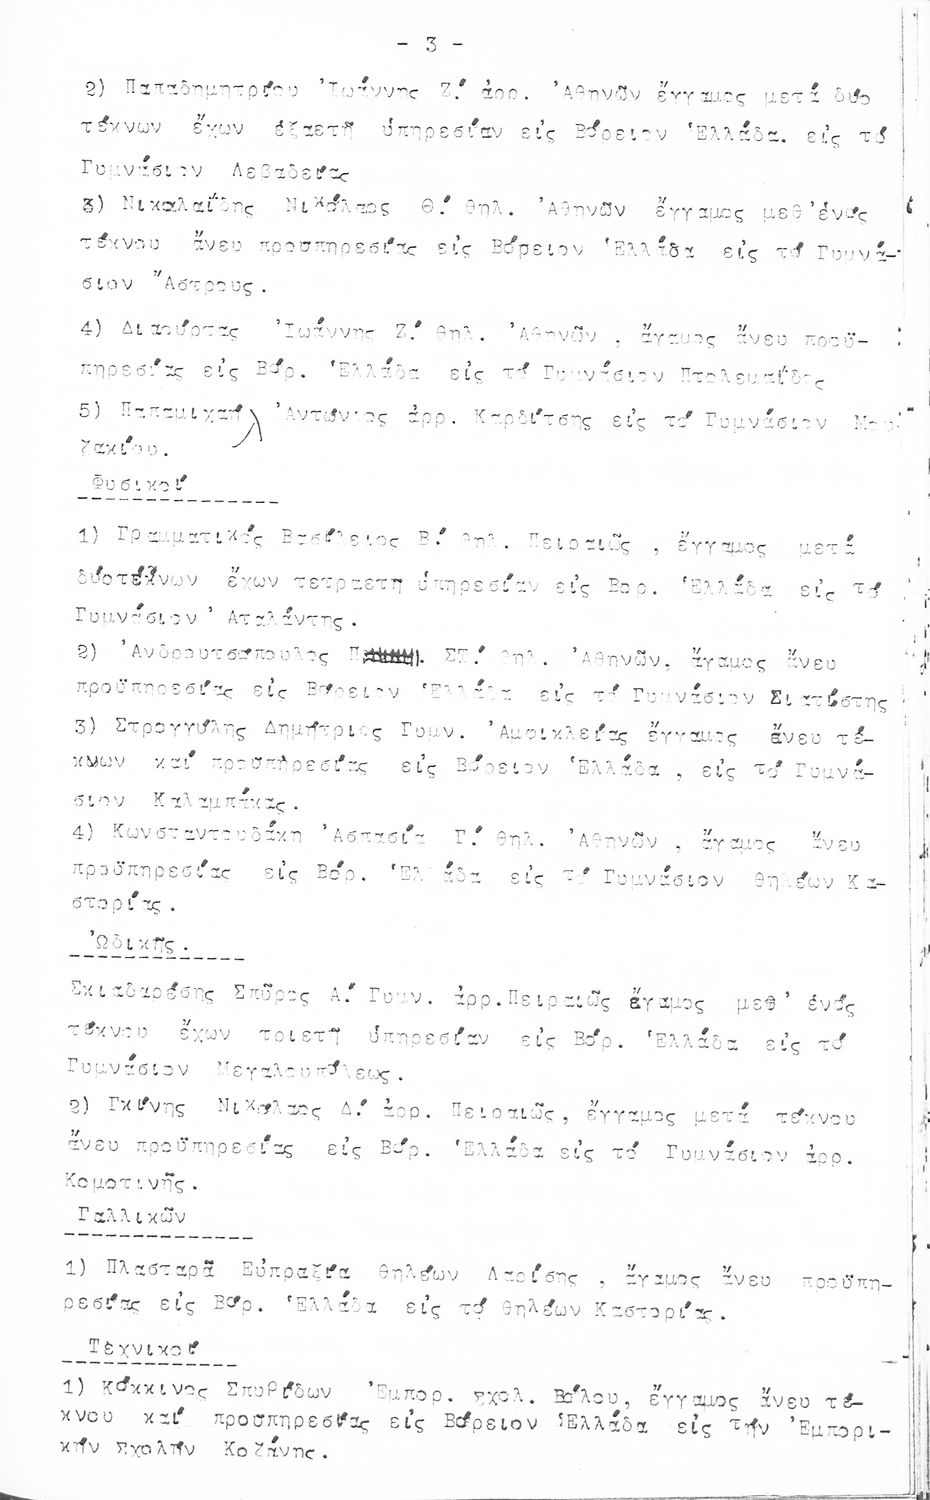 - 3 -
2) Παπαδημητρίου Ἰωάννης Ζ.' ἀρρ. Ἀθηνῶν ἔγγαμος μετά δύο
τέκνων ἔχων ἑξαετῆ ὑπηρεσίαν εἰς Βόρειον Ἑλλάδα. εἰς τό
Γυμνάσιον Λεβαδείας
3) Νικολαΐδης Νικόλαος Θ.' θηλ. Ἀθηνῶν ἔγγαμος μεθ' ἑνός
τέκνου ἄνευ προϋπηρεσίας εἰς Βόρειον Ἑλλάδα εἰς τό Γυμνά-
σιον Ἄστρους.
4) Διαούρτας Ἰωάννης Ζ.' θηλ. Ἀθηνῶν , ἄγαμος ἄνευ προϋ-
πηρεσίας εἰς Βόρ. Ἑλλάδα εἰς τό Γυμνάσιον Πτολεμαΐδος
5) Παπαμιχαήλ Ἀντώνιος ἀρρ. Καρδίτσης εἰς τό Γυμνάσιον Μου-
ζακίου.
Φυσικοί
1) Γραμματικός Βασίλειος Β.' θηλ. Πειραιῶς , ἔγγαμος μετά
δύοτέκνων ἔχων τετραετῆ ὑπηρεσίαν εἰς Βορ. Ἑλλάδα εἰς τό
Γυμνάσιον ' Αταλάντης.
2) Ἀνδρουτσόπουλος ΣΤ.' θηλ. Ἀθηνῶν, ἄγαμος ἄνευ
προϋπηρεσίας εἰς Βόρειον Ἑλλάδα εἰς τό Γυμνάσιον Σιατίστης
3) Στρογγύλης Δημήτριος Γυμν. Ἀμφικλείας ἔγγαμος ἄνευ τέ-
κνων καί προϋπηρεσίας εἰς Βόρειον Ἑλλάδα , εἰς τό Γυμνά-
σιον Καλαμπάκας.
4) Κωνσταντουδάκη Ἀσπασία Γ.' θηλ. Ἀθηνῶν , ἄγαμος ἄνευ
προϋπηρεσίας εἰς Βόρ. Ἑλλάδα εἰς τό Γυμνάσιον θηλέων Κα-
στορίας.
Ὠδικῆς.
Σκιαδαρέσης Σπῦρος Α.' Γυμν. ἀρρ.Πειραιῶς ἔγαμος μεθ' ἑνός
τέκνου ἔχων τριετῆ ὑπηρεσίαν εἰς Βόρ. Ἑλλάδα εἰς τό
Γυμνάσιον Μεγαλουπόλεως.
2) Γκίνης Νικόλαος Δ.' ἀρρ. Πειραιῶς, ἔγγαμος μετά τέκνου
ἄνευ προϋπηρεσίας εἰς Βόρ. Ἑλλάδα εἰς τό Γυμνάσιον ἀρρ.
Κομοτινῆς.
Γαλλικῶν
1) Πλασταρᾶ Εὐπραξία θηλέων Λαρίσης , ἄγαμος ἄνευ προϋπη-
ρεσίας εἰς Βόρ. Ἑλλάδα εἰς τό θηλέων Καστορίας.
Τεχνικοί
1) Κόκκινος Σπυρίδων Ἐμπορ. σχολ. Βόλου, ἔγγαμος ἄνευ τέ-
κνου καί προϋπηρεσίας εἰς Βόρειον Ἑλλάδα εἰς τήν Ἐμπορι-
κήν Σχολήν Κοζάνης.